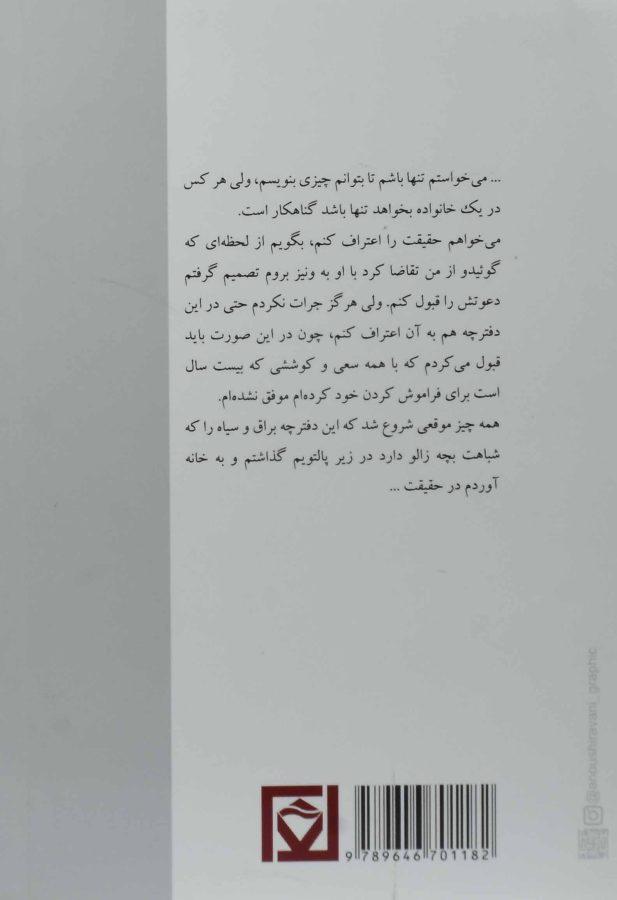 ... می‌خواستم تنها باشم تا بتوانم چیزی بنویسم، ولی هر کس
در یك خانواده بخواهد تنها باشد گناهکار است.
می‌خواهم حقیقت را اعتراف کنم، بگویم از لحظه‌ای که
گوئیدو از من تقاضا کرد با او به ونیز بروم تصمیم گرفتم
دعوتش را قبول کنم. ولی هرگز جرات نکردم حتی در این
دفترچه هم به آن اعتراف کنم، چون در این صورت باید
قبول می‌کردم که با همه سعی و کوششی که بیست سال
است برای فراموش کردن خود کرده‌ام موفق نشده‌ام.
همه چیز موقعی شروع شد که این دفترچه براق و سیاه را که
شباهت بچه زالو دارد در زیر پالتویم گذاشتم و به خانه
آوردم در حقیقت ...
@anoushiravani_graphic
9 789646 701182